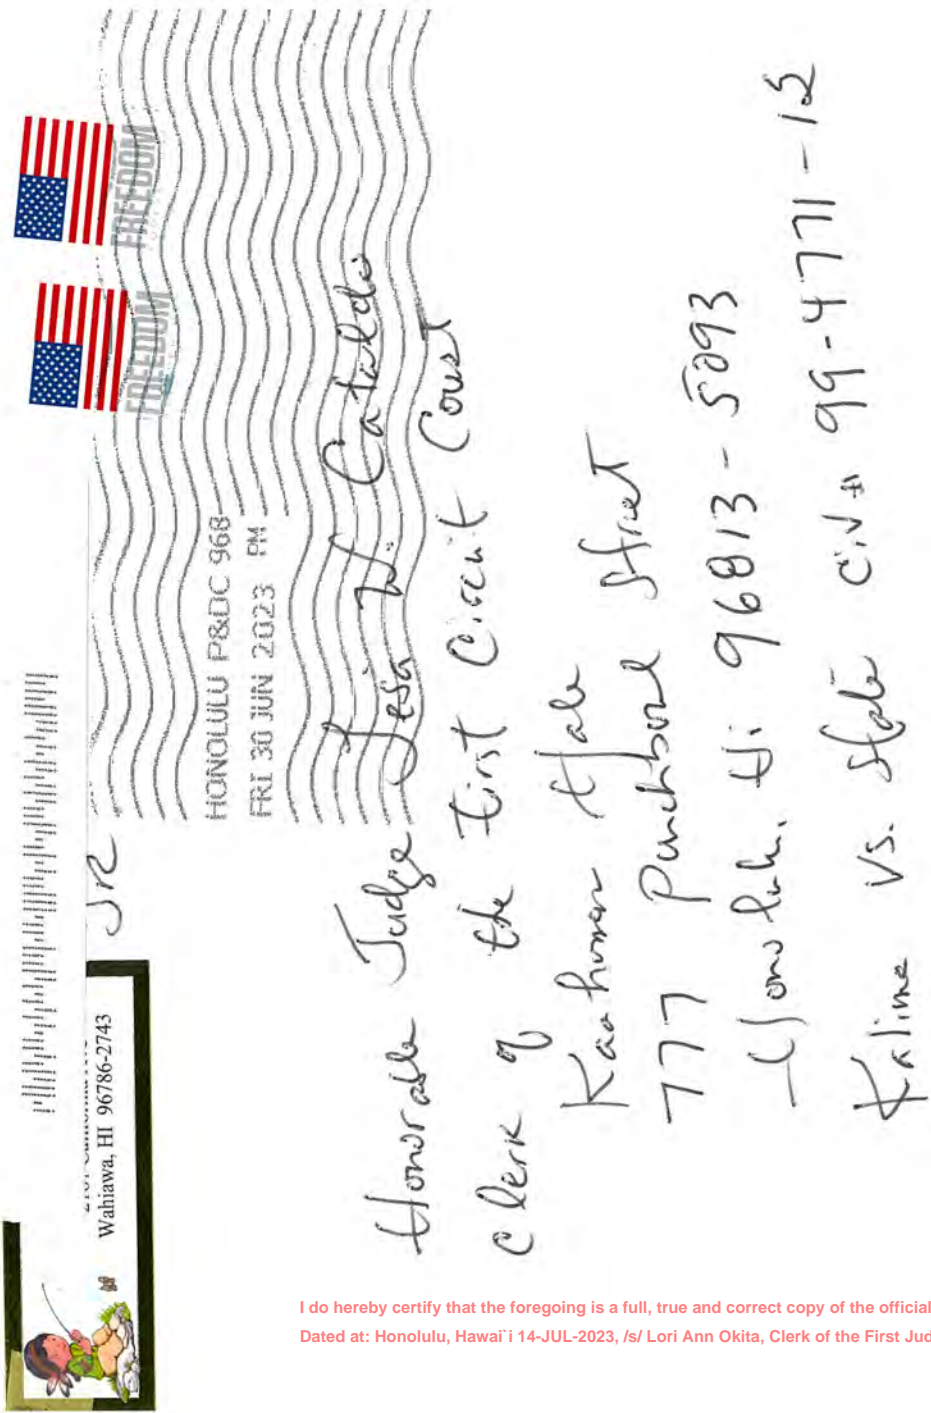 JR
Wahiawa, HI 96786-2743
FREEDOM FREEDOM
HONOLULU P&DC 968
FRI 30 JUN 2023 PM
Honorable Judge Lisa W. Cataldo
Clerk of the First Circuit Court
Kaahumanu Hale
777 Punchbowl Street
Honolulu, Hi 96813-5093
Kalima vs. State Civ # 99-4771-12
I do hereby certify that the foregoing is a full, true and correct copy of the official
Dated at: Honolulu, Hawai`i 14-JUL-2023, /s/ Lori Ann Okita, Clerk of the First Jud